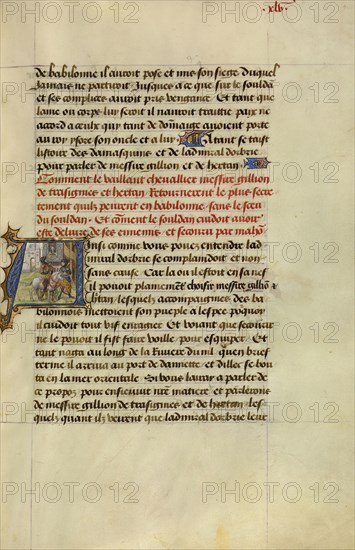 .xlv.
de babilonne il auroit pose et mis son siege duquel
Jamais ne partiroit Jusques a ce que sur le souldan
et ses complices auroit pris vengance. Et tant que
lame ou corps luy seroit il nauroit traittie paix ne
accord a ceulx quy tant de dommaige auoient porte
au roy ysore son oncle et a luy. Atant se taist
listoire des damasquins et de ladmiral dorbrie
pour parler de messire gillion et de hertan.
Comment le vaillant cheuallier messire gillion
de trasignies et hertan Retournerent le plus secre
tement quilz peurent en babilonne sans le sceu
du souldan. Et comment le souldan cuidoit auoir
este deliure de ses ennemis et secouru par mahom
Ainsi comme vous pouez entendre lad
miral dorbrie se complaindoit et non
sans cause Car la ou il estoit en sa nef
il pouoit plainement choisir messire gillion et
hertan lesquelz accompaignies des ba
bilonnois mettoient son pueple a lespee pourquoy
il cuidoit tout vif enragier Et voiant que secourir
ne le pouoit il fist faire voille pour esquiper Et
tant naga au long de la riuiere du nil quen brief
terme il arriua au port de damiette et dillec se bou
ta en la mer orientale Si vous lairay a parler de
ce propos pour ensieuuir nre matiere et parlerons
de messire gillion de trasignies et de hertan les
quelz quant ilz veirent que ladmiral dorbrie leur
PHOTO 12